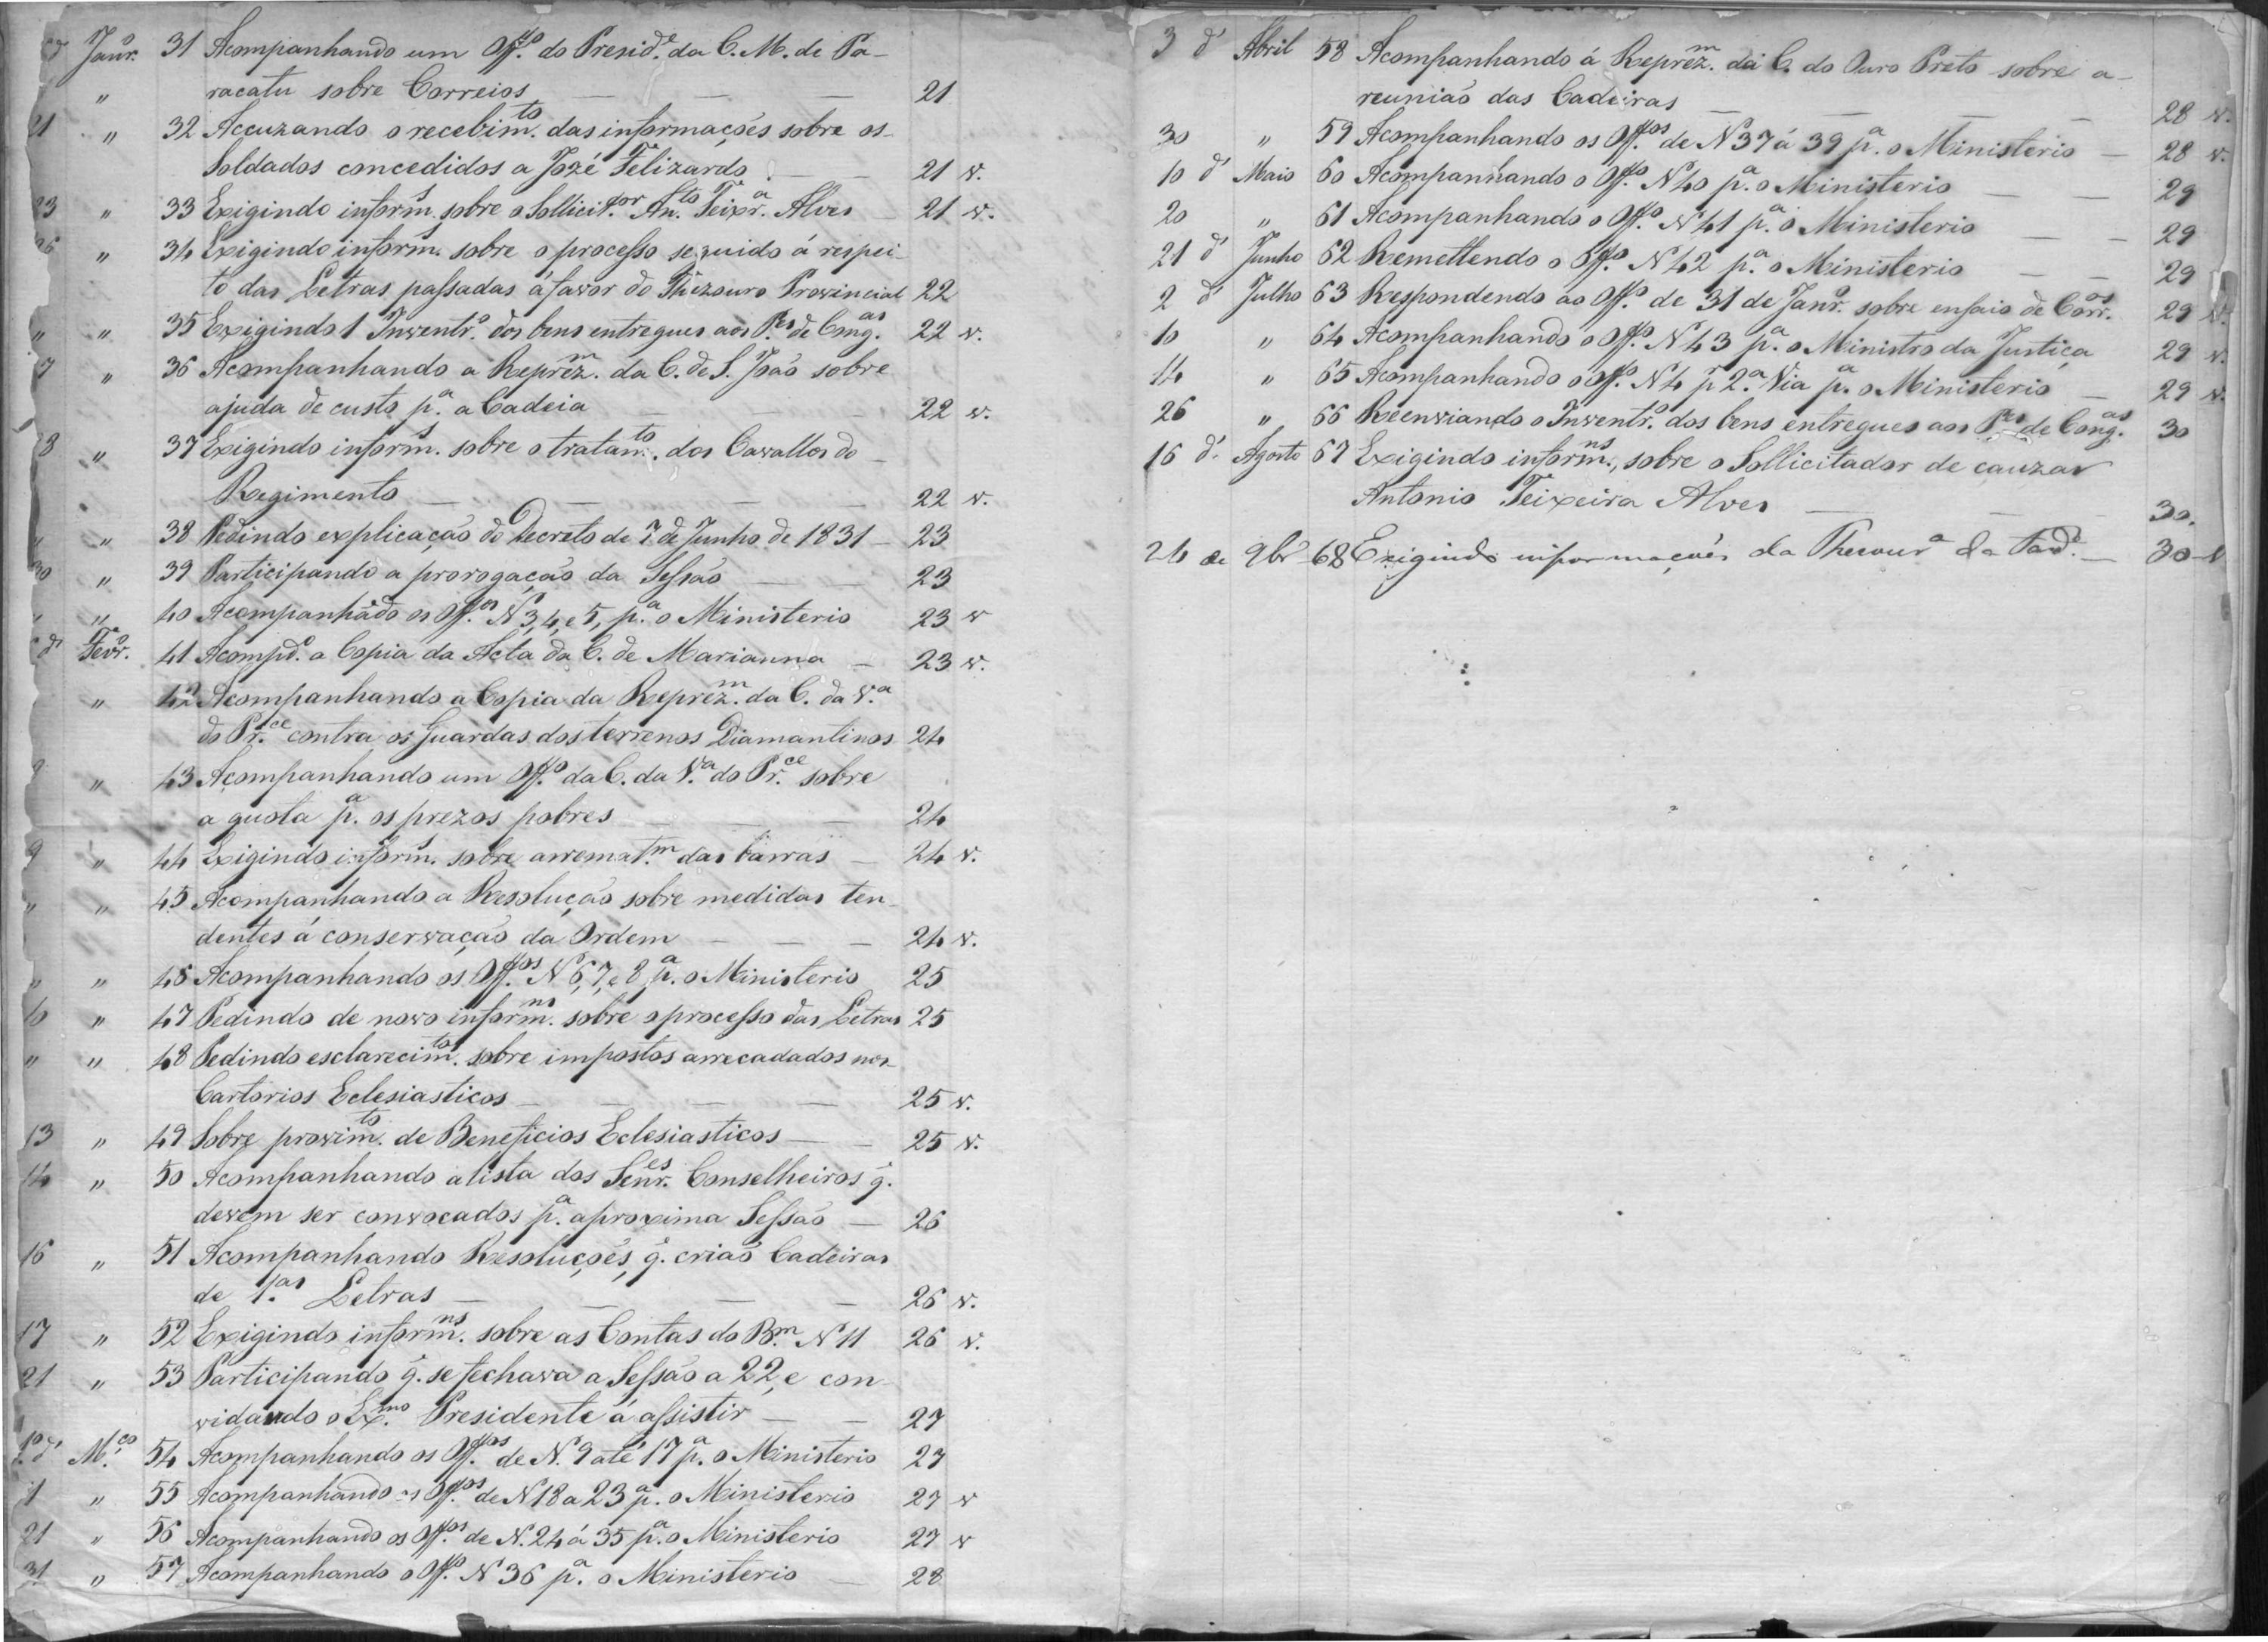 Janr.º 31 Acompanhando um Off.º do Presid.e da C. M. de Pa-
" racatu sobre Correios — — — 21
21 " 32 Accuzando o recebim.to das informações sobre os
Soldados concedidos a Jozé Felizardo — — 21 v.
23 " 33 Exigindo inform.s sobre o Sollicit.or An.to Teixr.a Alves — 21 v.
26 " 34 Exigindo inform.s sobre o processo seguido á respei-
to das Letras passadas á favor do Thizouro Provincial 22
" " 35 Exigindo 1 Inventr.º dos bens entregues aos P.es de Cong.as 22 v.
" 36 Acompanhando a Reprez.m da C. de S. Joaõ sobre
ajuda de custo p.a a Cadeia — — — 22 v.
28 " 37 Exigindo inform.s sobre o tratam.to dos Cavallos do
Regimento — — — — 22 v.
" " 38 Pedindo explicaçaõ do Decreto de 7 de Junho de 1831 — 23
30 " 39 Participando a prorogaçaõ da Sessaõ — — 23
" " 40 Acompanhãdo os Off.os Nº 3, 4, e 5, p.a o Ministerio 23 v
d' Fevr.º 41 Acompd.º a Copia da Acta da C. de Marianna — 23 v.
" 42 Acompanhando a Copia da Reprez.m da C. da V.a
do Pr.ce contra os Guardas dos terrenos Diamantinos 24
" 43 Acompanhando um Off.º da C. da V.a do Pr.ce sobre
a quota p.a os prezos pobres — — — 24
9 " 44 Exigindo inform.s sobre arremat.m das barras — 24 v.
" " 45 Acompanhando a Resoluçaõ sobre medidas ten-
dentes á conservaçaõ da Ordem — — — 24 v.
" " 46 Acompanhando os Off.os Nº 6, 7, e 8, p.a o Ministerio 25
10 " 47 Pedindo de novo inform.ns sobre o processo das Letras 25
" " 48 Pedindo esclarecim.to sobre impostos arrecadados nos
Cartorios Eclesiasticos — — — — 25 v.
13 " 49 Sobre provim.to de Beneficios Eclesiasticos — — 25 v.
14 " 50 Acompanhando a lista dos Senr.es Conselheiros q̃.
devem ser convocados p.a a proxima Sessaõ — 26
16 " 51 Acompanhando Resoluções, q̃. criaõ Cadeiras
de 1.as Letras — — — — 26 v.
17 " 52 Exigindo inform.ns sobre as Contas do B.m Nº 11 26 v.
21 " 53 Participando q̃. se fechava a Sessaõ a 22, e con-
vidando o Ex.mo Presidente á assistir — — 27
1.º d' M.ço 54 Acompanhando os Off.os de N. 9 até 17 p.a o Ministerio 27
" 55 Acompanhando os Off.os de N 18 a 23 p.a o Ministerio 27 v
21 " 56 Acompanhando os Off.os de N. 24 á 35 p.a o Ministerio 27 v
31 " 57 Acompanhando o Off.º Nº 36 p.a o Ministerio — 28
3 d' Abril 58 Acompanhando á Reprez.m da C. do Ouro Preto sobre a
reuniaõ das Cadeiras — — — — 28 v.
30 " 59 Acompanhando os Off.os de N 37 á 39 p.a o Ministerio — 28 v.
10 d' Maio 60 Acompanhando o Off.º Nº 40 p.a o Ministerio — — 29
20 " 61 Acompanhando o Off.º Nº 41 p.a o Ministerio — — 29
21 d' Junho 62 Remettendo o Off.º Nº 42 p.a o Ministerio — — 29
2 d' Julho 63 Respondendo ao Off.º de 31 de Janr.º sobre ensaio de Corr.as 29 v.
10 " 64 Acompanhando o Off.º Nº 43 p.a o Ministro da Justiça 29 v.
14 " 65 Acompanhando o Off.º Nº 4 pr 2.a Via p.a o Ministerio — 29 v.
26 " 66 Reenviando o Inventr.º dos bens entregues aos P.es de Cong.as 30
16 d' Agosto 67 Exigindo inform.ns, sobre o Sollicitador de cauzas
Antonio Teixeira Alves — — — 30.
24 de 9br.º 68 Exigindo informaçoẽs da Thesour.a da Fazd.ª — 30 v